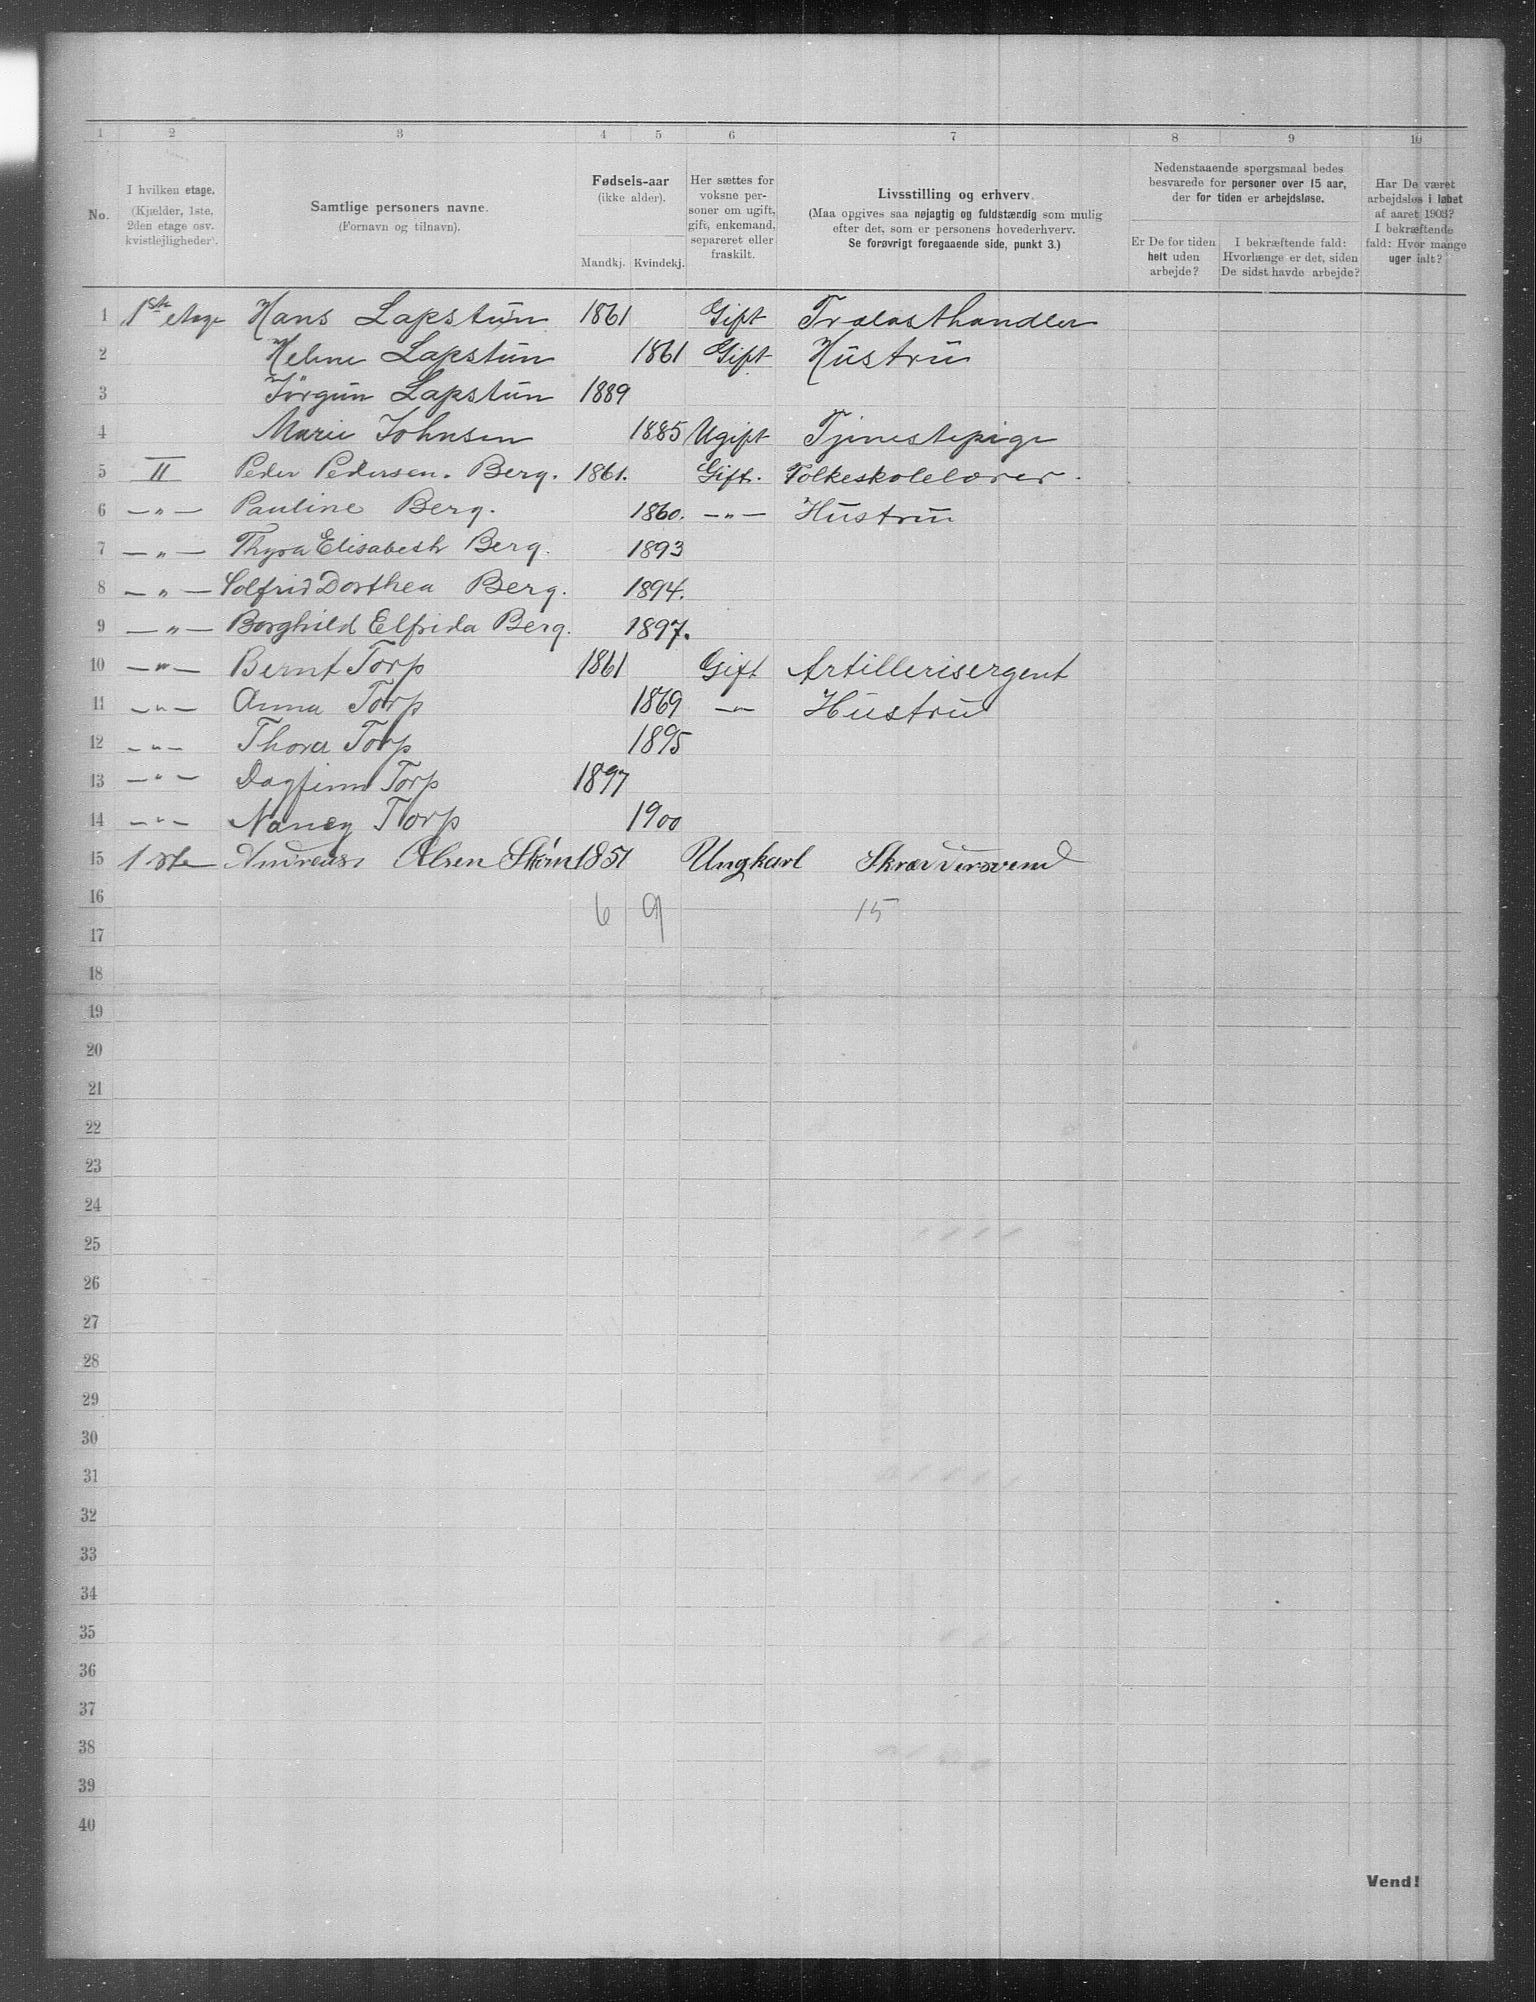 1 2 3 4 5 6 7 8 9 10
No.
I hvilken etage.
(Kjælder, 1ste,
2den etage osv.
kvistlejligheder).
Samtlige personers navne.
(Fornavn og tilnavn).
Fødsels-aar
(ikke alder).
Mandkj. Kvindekj.
Her sættes for
voksne per-
soner om ugift,
gift, enkemand,
separeret eller
fraskilt.
Livsstilling og erhverv.
(Maa opgives saa nøjagtig og fuldstændig som mulig
efter det, som er personens hovederhverv.
Se forøvrigt foregaaende side, punkt 3.)
Nedenstaaende spørgsmaal bedes
besvarede for personer over 15 aar,
der for tiden er arbejdsløse.
Er De for tiden
helt uden
arbejde?
I bekræftende fald:
Hvorlænge er det, siden
De sidst havde arbejde?
Har De været
arbejdsløs i løbet
af aaret 1903?
I bekræftende
fald: Hvor mange
uger ialt?
1 1ste etage Hans Lapstün 1861 Gift Trælasthandler
2 Helene Lapstün 1861 Gift Hüstrü
3 Jörgün Lapstün 1889
4 Marie Johnsen 1885 Ugift Tjenestepige
5 II Peder Pedersen. Berg. 1861. Gift. Folkeskolelærer.
6 —„— Pauline Berg. 1860. —„— Hüstrü
7 —„— Thyra Elisabeth Berg. 1893
8 —„— Solfrid Dorthea Berg. 1894.
9 —„— Borghild Elfrida Berg. 1897.
10 —„— Bernt Torp 1861 Gift Artillerisergent
11 —„— Anna Torp 1869 —„— Hüstrü
12 —„— Thora Torp 1895
13 —„— Dagfinn Torp 1897
14 —„— Nancy Torp 1900
15 1ste Andreas Olsen 1851 Ungkarl Skræddersvend
16 6 9 15
17
18
19
20
21
22
23
24
25
26
27
28
29
30
31
32
33
34
35
36
37
38
39
40
Vend!